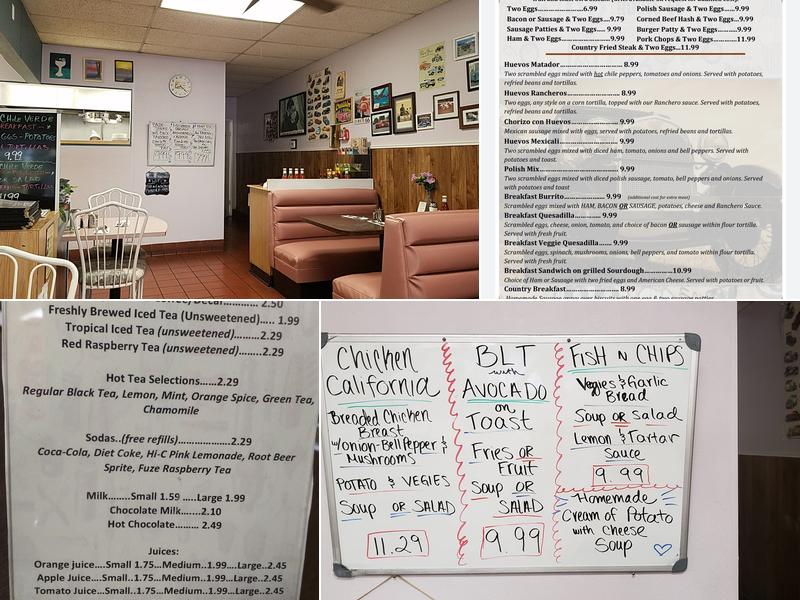 CHILE VERDE
BREAKFAST
EGGS-POTATOES
9.99
CHILE VERDE
Two Eggs.........................6.99
Polish Sausage & Two Eggs...9.99
Bacon or Sausage & Two Eggs....9.79
Corned Beef Hash & Two Eggs...9.99
Sausage Patties & Two Eggs.... 9.99
Burger Patty & Two Eggs.........9.99
Ham & Two Eggs.....................9.99
Pork Chops & Two Eggs...........11.99
Country Fried Steak & Two Eggs...11.99
Huevos Matador................................ 8.99
Two scrambled eggs mixed with hot chile peppers, tomatoes and onions. Served with potatoes,
refried beans and tortillas.
Huevos Rancheros............................. 8.99
Two eggs, any style on a corn tortilla, topped with our Ranchero sauce. Served with potatoes,
refried beans and tortillas.
Chorizo con Huevos........................ 9.99
Mexican sausage mixed with eggs, served with potatoes, refried beans and tortillas.
Huevos Mexicali............................. 9.99
Two scrambled eggs mixed with diced ham, tomato, onions and bell peppers. Served with
potatoes and toast.
Polish Mix...................................... 9.99
Two scrambled eggs mixed with diced polish sausage, tomato, bell peppers and onions. Served
with potatoes and toast
Breakfast Burrito........................ 9.99 (additional cost for extra meat)
Scrambled eggs mixed with HAM, BACON OR SAUSAGE, potatoes, cheese and Ranchero Sauce.
Breakfast Quesadilla.............. 9.99
Scrambled eggs, cheese, onion, tomato, and choice of bacon OR sausage within flour tortilla.
Served with fresh fruit.
Breakfast Veggie Quesadilla....... 9.99
Scrambled eggs, spinach, mushrooms, onions, bell peppers, and tomato within flour tortilla.
Served with fresh fruit.
Breakfast Sandwich on grilled Sourdough...............10.99
Choice of Ham or Sausage with two fried eggs and American Cheese. Served with potatoes or fruit.
Country Breakfast........................ 8.99
Homemade Sausage gravy over biscuits with one egg & two sausage patties
Coffee/Decaf............... 2.50
Freshly Brewed Iced Tea (Unsweetened)..... 1.99
Tropical Iced Tea (unsweetened)........2.29
Red Raspberry Tea (unsweetened).......2.29
Hot Tea Selections......2.29
Regular Black Tea, Lemon, Mint, Orange Spice, Green Tea,
Chamomile
Sodas..(free refills)...............2.29
Coca-Cola, Diet Coke, Hi-C Pink Lemonade, Root Beer
Sprite, Fuze Raspberry Tea
Milk........Small 1.59 .....Large 1.99
Chocolate Milk.......2.10
Hot Chocolate......... 2.49
Juices:
Orange juice....Small 1.75...Medium..1.99....Large..2.45
Apple Juice....Small..1.75...Medium..1.99...Large..2.45
Tomato Juice...Small 1.75...Medium..1.99...Large..2.45
Chicken
California
Breaded Chicken
Breast
w/onion-Bell Pepper &
Mushrooms
POTATO & VEGIES
Soup OR SALAD
11.29
BLT
with
AVOCADO
on
Toast
Fries OR
Fruit
Soup OR
SALAD
9.99
FISH N CHIPS
Vegies & Garlic
Bread
Soup OR Salad
Lemon & Tartar
Sauce
9.99
Homemade
Cream of Potato
with cheese
Soup